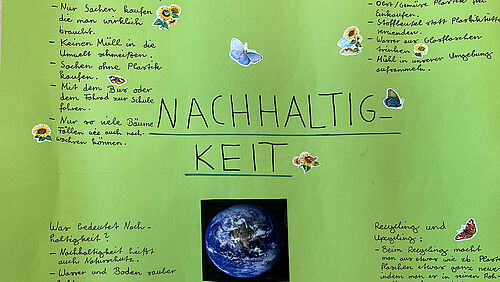 - Nur Sachen kaufen
die man wirklich
braucht.
- Keinen Müll in die
Umwelt schmeißen.
- Sachen ohne Plastik
kaufen.
- Mit dem Bus oder
dem Fahrad zur Schule
fahren.
- Nur so viele Bäume
fällen wie auch nach-
wachsen können.
- Obst/Gemüse Plastik frei
einkaufen.
- Stoffbeutel statt Plastiktüte
verwenden.
- Wasser aus Glasflaschen
trinken
- Mühl in unserer Umgebung
aufsammeln.
NACHHALTIG-
KEIT
Was bedeutet Nach-
haltigkeit?
- Nachhaltigkeit heißt
auch Naturschutz.
- Wasser und Boden sauber
Recycling und
Upcycling:
- Beim Recycling macht
man aus etwas wie zb. Plastik
flaschen etwas ganz neues
indem man er in seinen Roh-